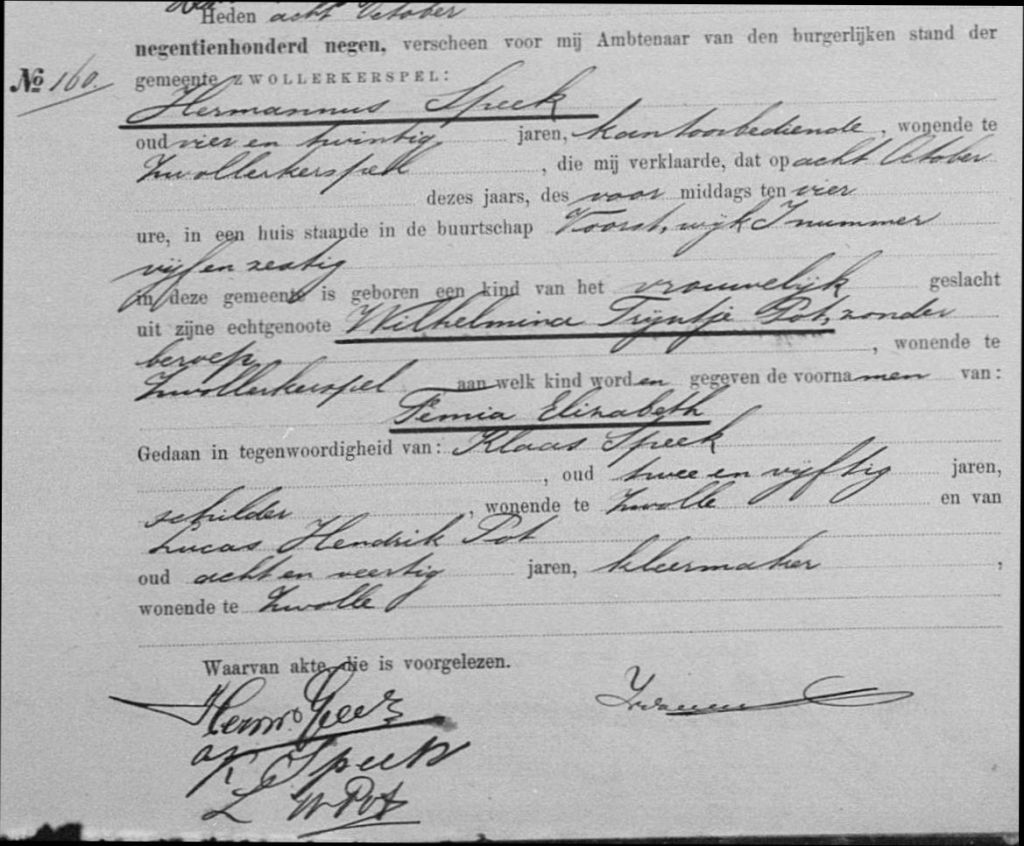 Heden acht October
negentienhonderd negen, verscheen voor mij Ambtenaar van den burgerlijken stand der
No 160. gemeente ZWOLLERKERSPEL:
Hermannus Speek
oud vier en twintig jaren, kantoorbediende, wonende te
Zwollerkerspel, die mij verklaarde, dat op acht October
dezes jaars, des voor middags ten vier
ure, in een huis staande in de buurtschap Voorst, wijk I nummer
vijf en zestig
in deze gemeente is geboren een kind van het vrouwelijk geslacht
uit zijne echtgenoote Wilhelmina Trijntje Pot, zonder
beroep, wonende te
Zwollerkerspel aan welk kind worden gegeven de voornamen van:
Femia Elizabeth
Gedaan in tegenwoordigheid van: Klaas Speek
, oud twee en vijftig jaren,
schilder, wonende te Zwolle en van
Lucas Hendrik Pot
oud acht en veertig jaren, kleermaker,
wonende te Zwolle
Waarvan akte, die is voorgelezen.
Herms Speek
K Speek
L H Pot